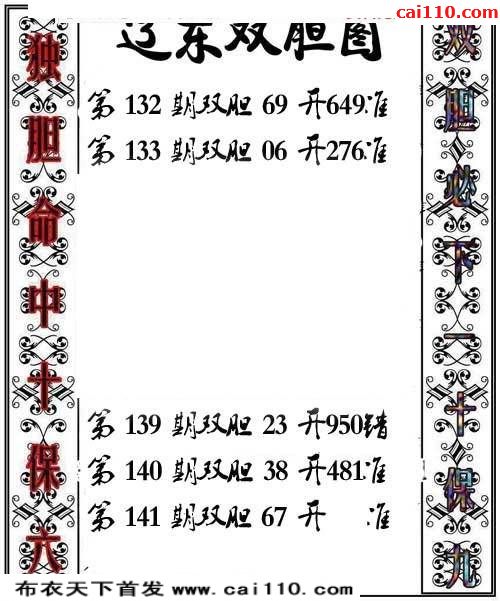 cai110.com
辽东双胆图
独胆命中十保六
双胆必下二十保九
第 132 期双胆 69 开649准
第 133 期双胆 06 开276准
第 139 期双胆 23 开950错
第 140 期双胆 38 开481准
第 141 期双胆 67 开 准
布衣天下首发 www.cai110.com